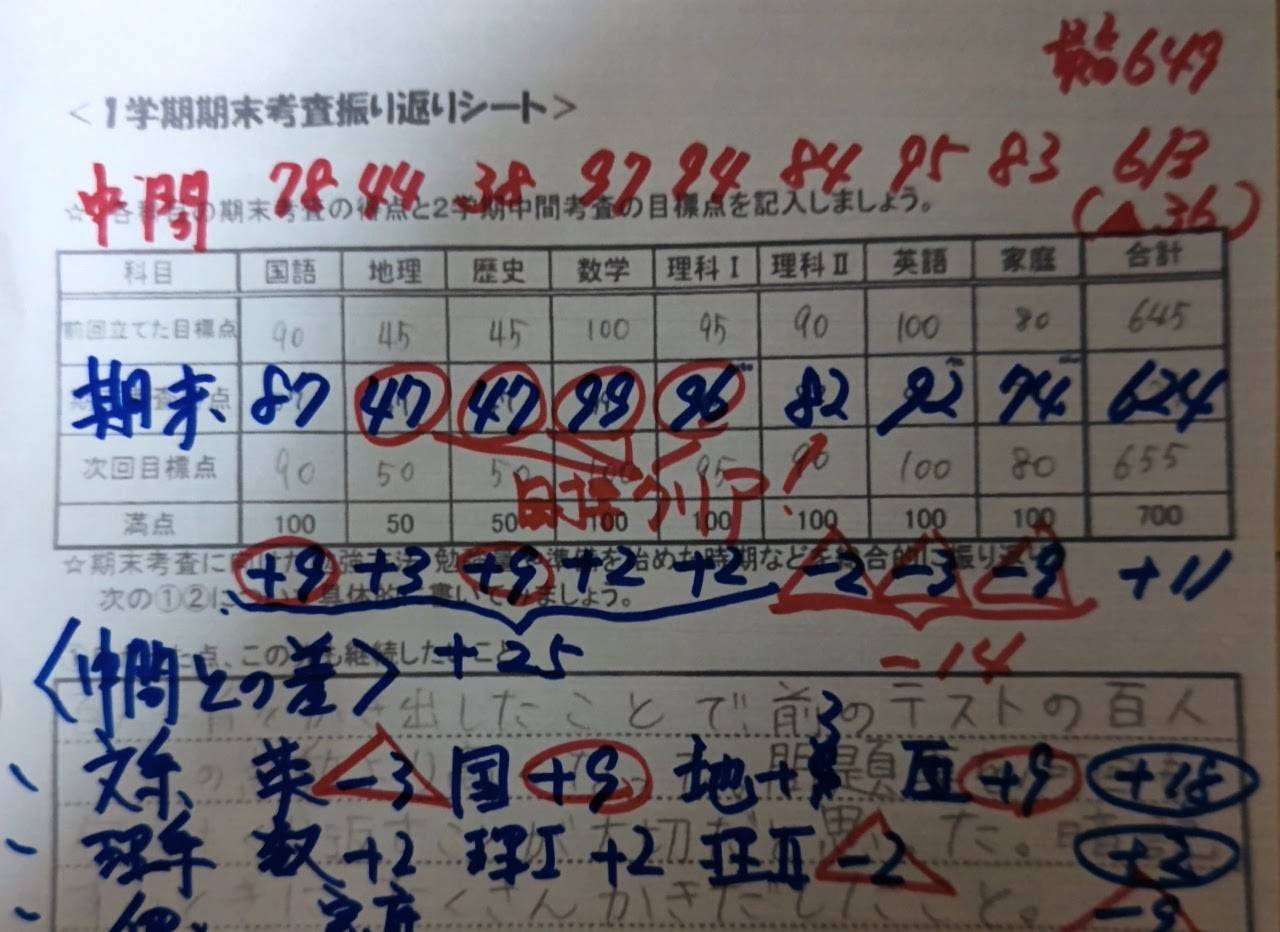 最高649
<1学期期末考査振り返りシート>
中間 78 44 38 97 94 84 95 83 613
(▲36)
☆各科目の期末考査の得点と2学期中間考査の目標点を記入しましょう。
科目 国語 地理 歴史 数学 理科Ⅰ 理科Ⅱ 英語 家庭 合計
前回立てた目標点 90 45 45 100 95 90 100 80 645
期末 87 47 47 99 96 82 92 74 624
次回目標点 90 50 50 100 95 90 100 80 655
目標クリア!
満点 100 50 50 100 100 100 100 100 700
☆期末考査に 勉強 法 勉強 準備を始めた時期などを総合的に振り返り
+9 +3 +9 +2 +2 -2 -3 -9 +11
次の①②に 具体的 書いて ましょう。
た点、この も継続したいこと
+25 -14
<中間との差>
出したことで、前のテストの百人
文系 英-3 国+9 地+3 歴+9 +18
問題
理系 数+2 理Ⅰ+2 理Ⅱ-2 +2
が大切だと思った。暗
個 家庭 -9
くさんかきだしたこと。